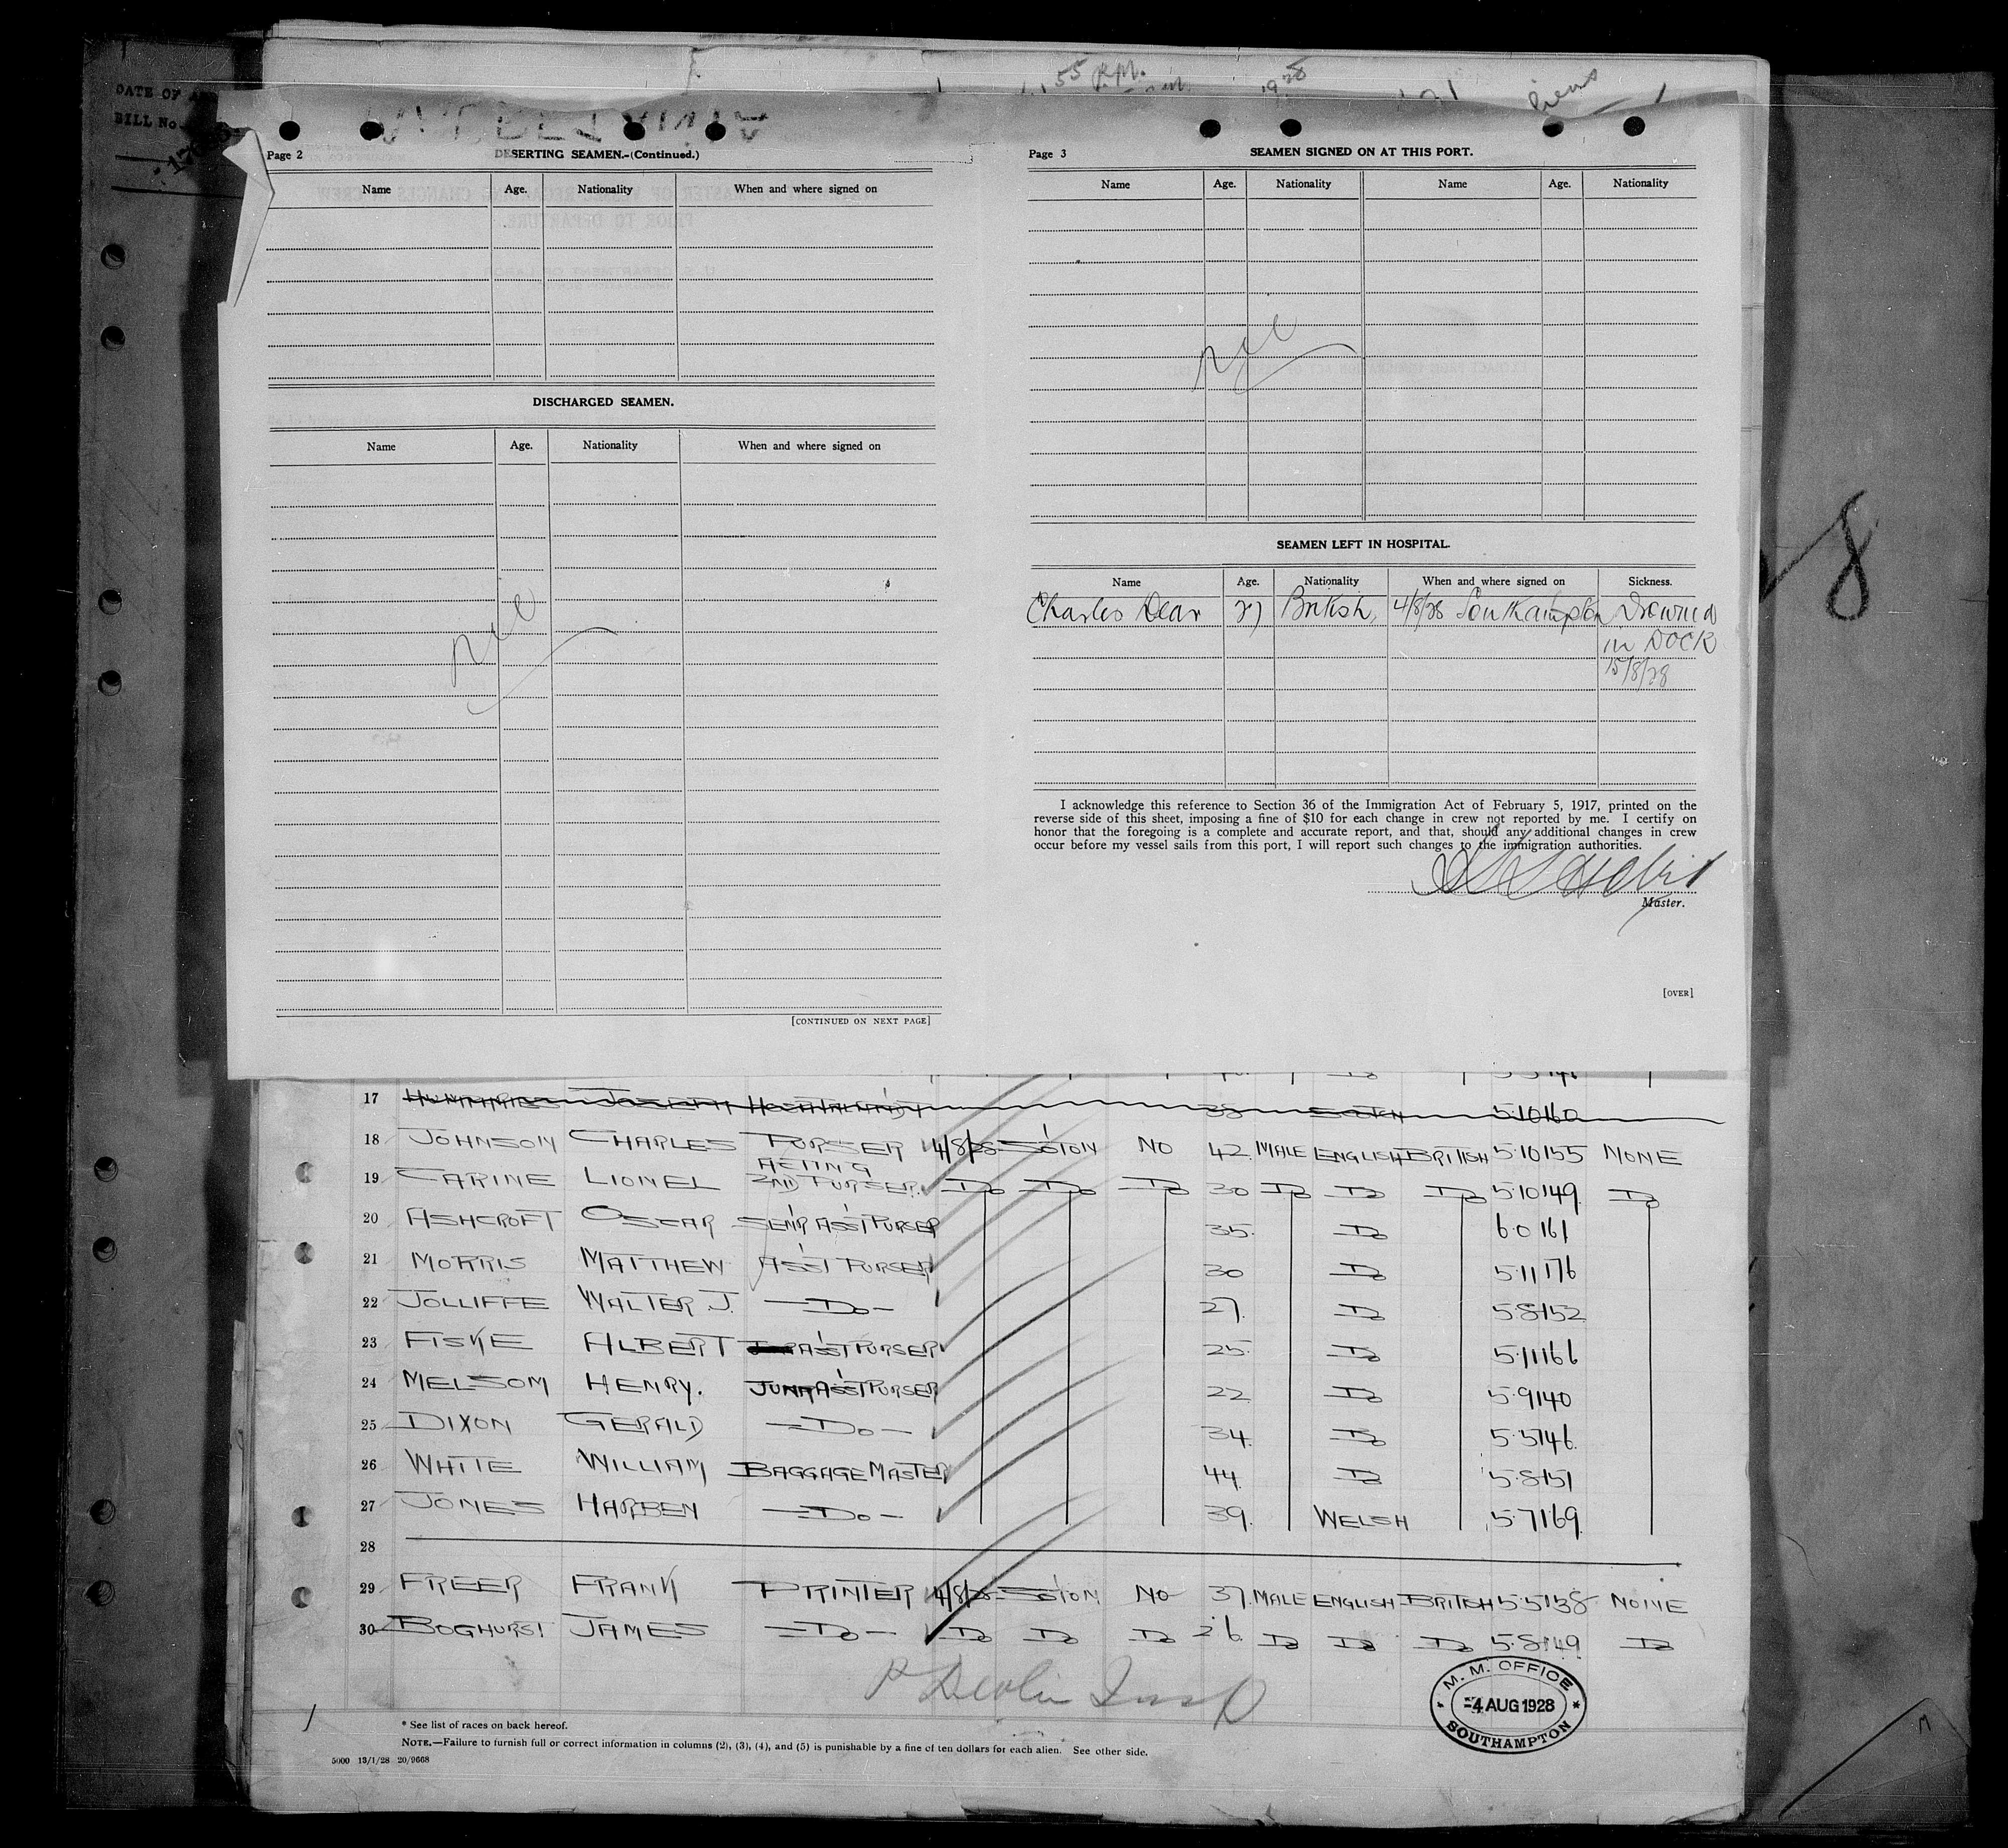 DATE OF
BILL No.
Page 2
DESERTING SEAMEN.-(Continued.)
Name Age. Nationality When and where signed on
DISCHARGED SEAMEN.
Name Age. Nationality When and where signed on
nil
[CONTINUED ON NEXT PAGE]
Page 3
SEAMEN SIGNED ON AT THIS PORT.
Name Age. Nationality Name Age. Nationality
nil
SEAMEN LEFT IN HOSPITAL.
Name Age. Nationality When and where signed on Sickness.
Charles Dear 27 British, 4/8/28 Southampton Drowned
in DOCK
15/8/28
I acknowledge this reference to Section 36 of the Immigration Act of February 5, 1917, printed on the
reverse side of this sheet, imposing a fine of $10 for each change in crew not reported by me. I certify on
honor that the foregoing is a complete and accurate report, and that, should any additional changes in crew
occur before my vessel sails from this port, I will report such changes to the immigration authorities.
Master.
[OVER]
8
17 HUMPHRIES JOSEPH 38 5·10 160
18 JOHNSON CHARLES PURSER 4/8/28 SO'TON NO 42. MALE ENGLISH BRITISH 5·10 155 NONE
19 CARINE LIONEL ACTING 2ND PURSER. Do Do Do 30 Do Do Do 5·10 149. Do
20 ASHCROFT OSCAR SEN'R ASS'T PURSER 35. Do 6·0 161
21 MORRIS MATTHEW ASS'T PURSER 30 Do 5·11 176
22 JOLLIFFE WALTER J. —Do— 27. Do 5·8 152
23 FISKE ALBERT ASS'T PURSER 25. Do 5·11 166
24 MELSOM HENRY. JUNR ASS'T PURSER 22 Do 5·9 140
25 DIXON GERALD —Do— 34. Do 5·5 146.
26 WHITE WILLIAM BAGGAGE MASTER 44. Do 5·8 151
27 JONES HARBEN —Do— 39. WELSH 5·7 169.
28
29 FREER FRANK PRINTER 4/8/28 SO'TON NO 37. MALE ENGLISH BRITISH 5·5 138 NONE
30 BOGHURST JAMES —Do— Do Do Do 26. Do Do Do 5·8 149 Do
M. M. OFFICE
-4 AUG 1928
SOUTHAMPTON
* See list of races on back hereof.
NOTE.—Failure to furnish full or correct information in columns (2), (3), (4), and (5) is punishable by a fine of ten dollars for each alien. See other side.
5000 13/1/28 20/9668